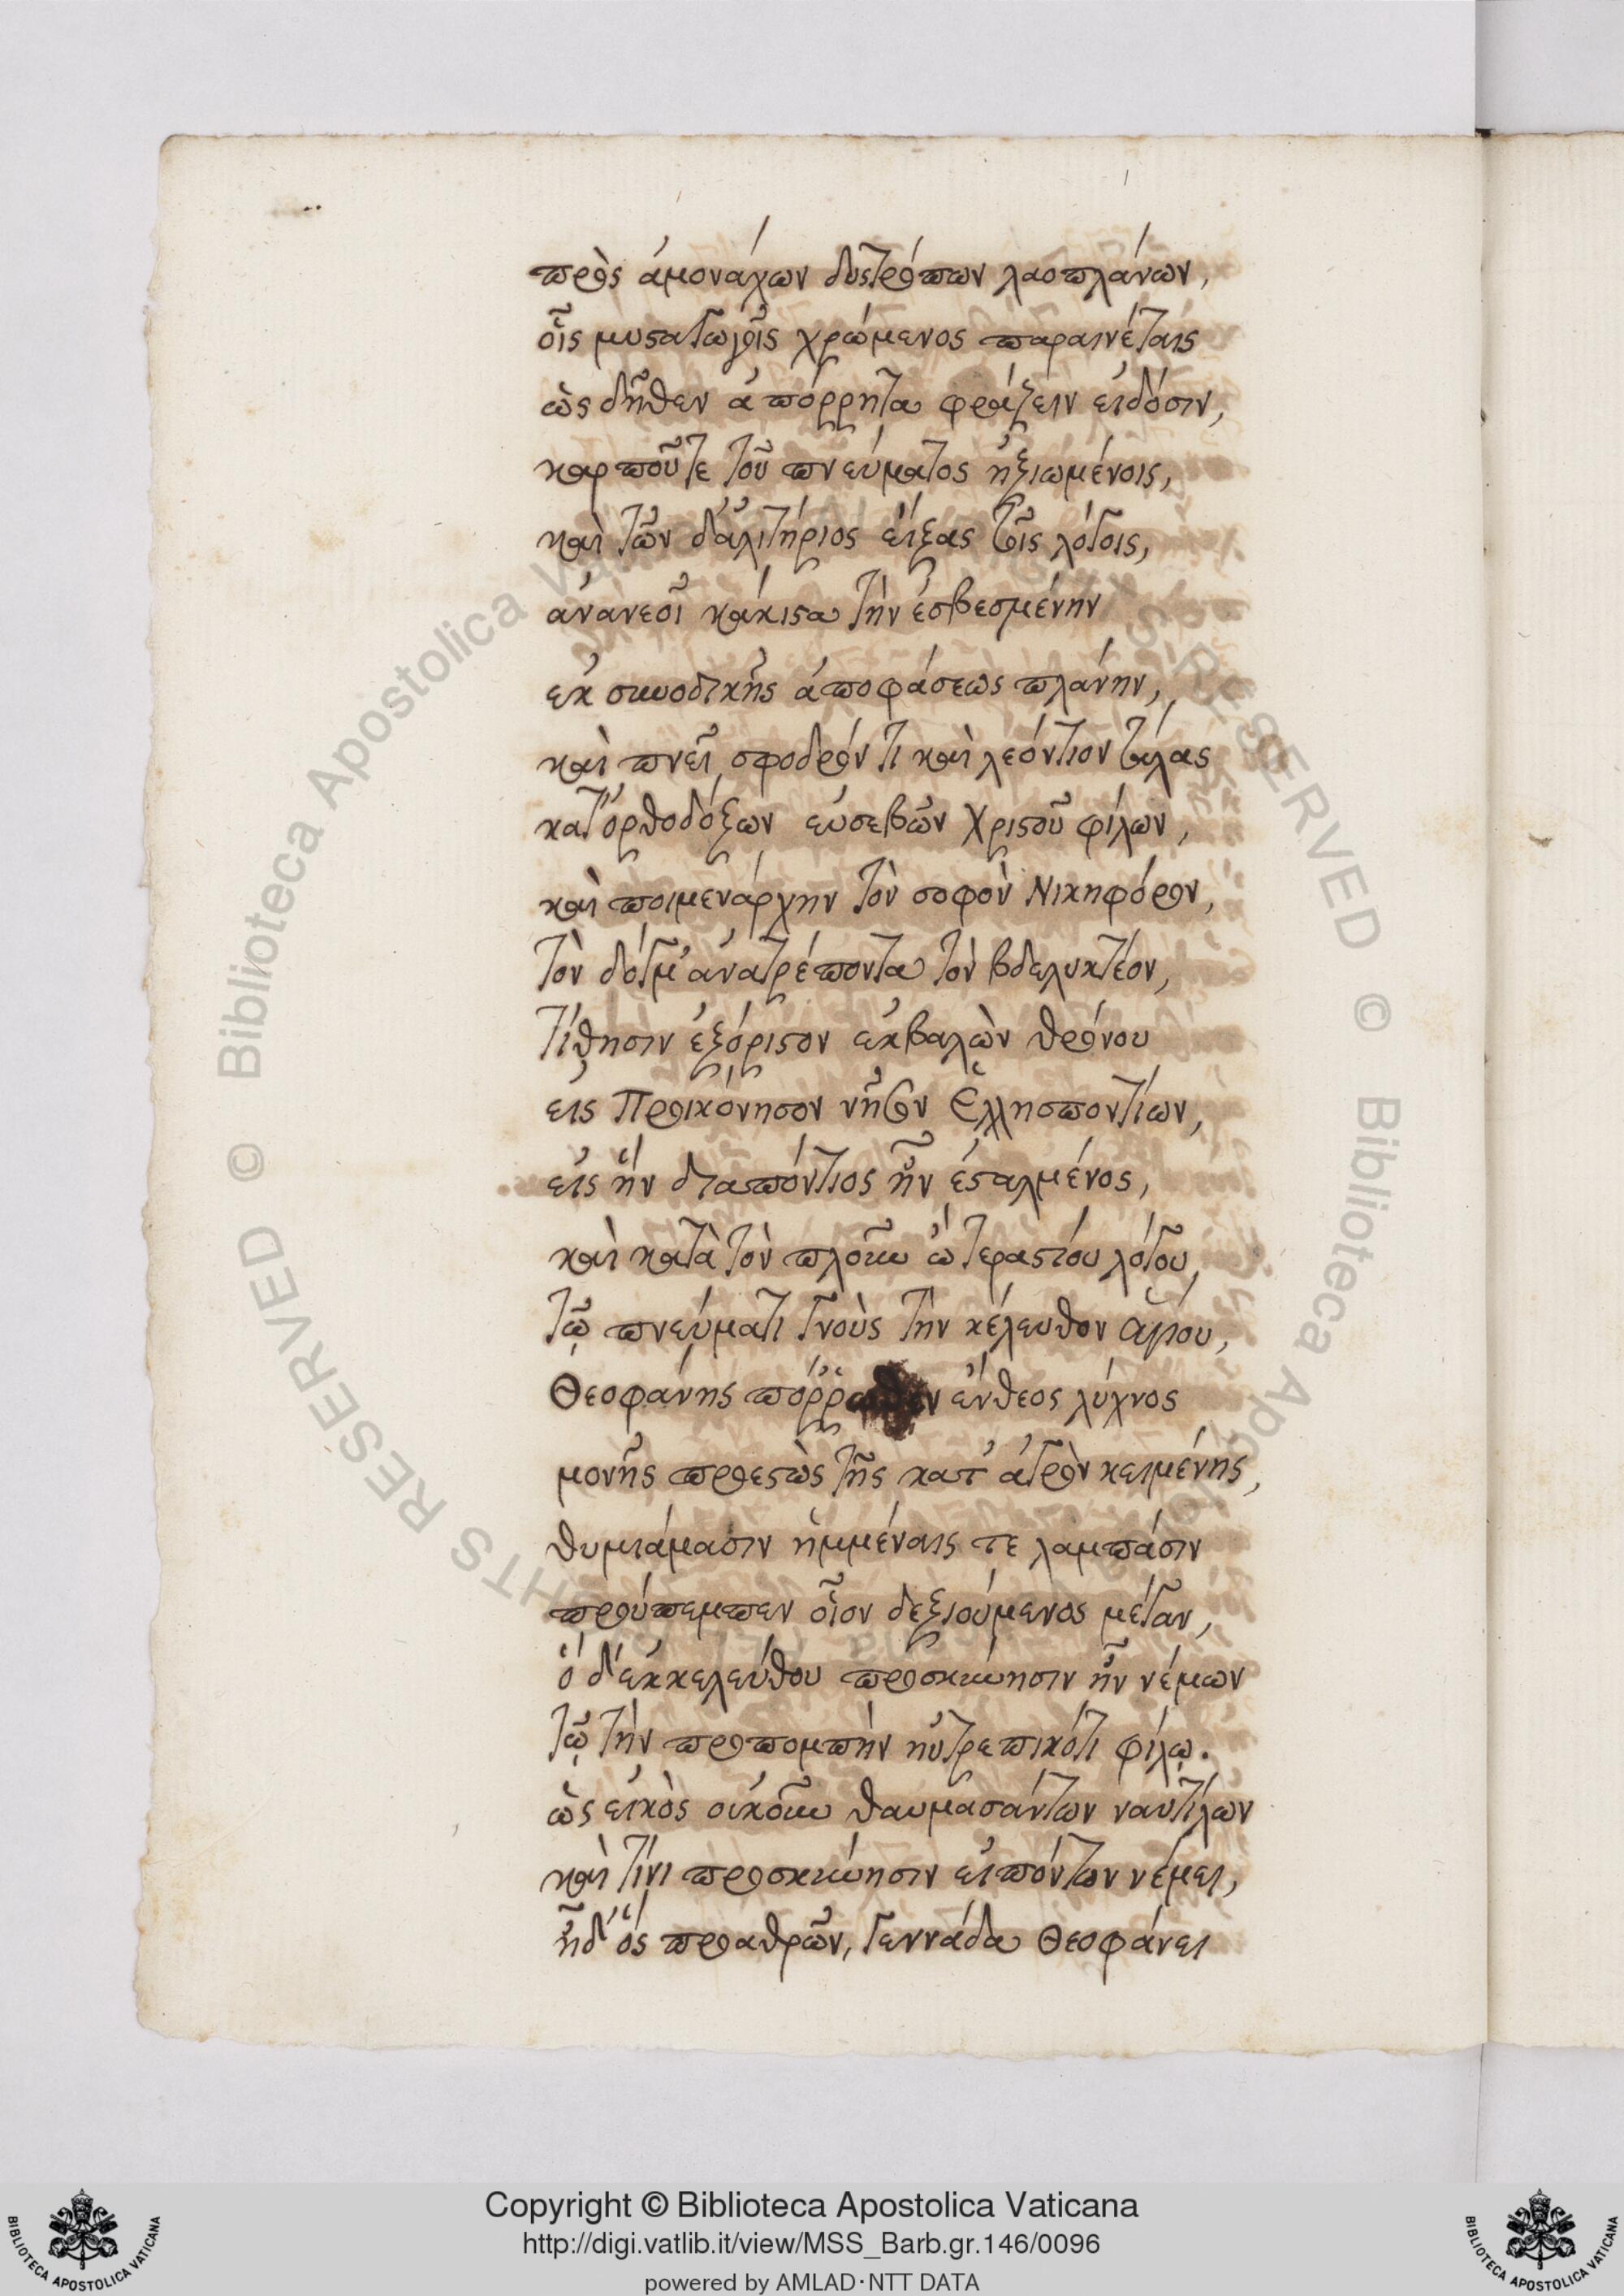 πρὸς ἀμονάχων δυστρόπων λαοπλάνων,
οἷς μυσταγωγοῖς χρώμενος παραινέταις
ὡς δῆθεν ἀπόρρητα φράζειν εἰδόσιν,
καρποῦ τε τοῦ πνεύματος ἠξιωμένοις,
καὶ τῶν δ' ἀλιτήριος εἴξας τοῖς λόγοις,
ἀνανεοῖ κάκιστα τὴν ἐσβεσμένην
ἐκ συνοδικῆς ἀποφάσεως πλάνην,
καὶ πνεῖ σφοδρόν τι καὶ λεόντιον τάλας
κατ' ὀρθοδόξων εὐσεβῶν Χριστοῦ φίλων,
καὶ ποιμενάρχην τὸν σοφὸν Νικηφόρον,
τὸν δόγμ' ἀνατρέποντα τὸν βδελυκτέον,
τίθησιν ἐξόριστον ἐκβαλὼν θρόνου
εἰς Προικόνησον νῆσον Ἑλλησποντίων,
εἰς ἣν διαπόντιος ἦν ἐσταλμένος,
καὶ κατὰ τὸν πλοῦν ὢ τεραστίου λόγου,
τῷ πνεύματι γνοὺς τὴν κέλευθον ἁγίου,
Θεοφάνης πόρρωθεν ἔνθεος λύχνος
μονῆς προεστὼς τῆς κατ' ἀγρὸν κειμένης,
θυμιάμασιν ἡμμέναις τε λαμπάσιν
προὔπεμπεν οἷον δεξιούμενος μέγαν,
ὁ δ' ἐκ κελεύθου προσκύνησιν ἦν νέμων
τῷ τὴν προπομπὴν ηὐτρεπικότι φίλῳ.
ὡς εἰκὸς οὐκοῦν θαυμασάντων ναυτίλων
καὶ τίνι προσκύνησιν εἰπόντων νέμει,
ἦ δ' ὃς προαθρῶν, γεννάδα Θεοφάνει
Copyright © Biblioteca Apostolica Vaticana
http://digi.vatlib.it/view/MSS_Barb.gr.146/0096
powered by AMLAD·NTT DATA